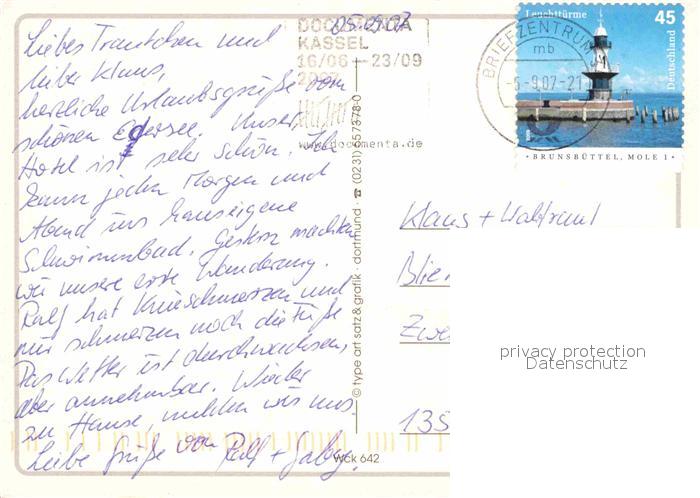 05.09.07
Liebes Trautchen und
lieber Klaus,
herzliche Urlaubsgrüße vom
schönen Edersee. Unser
Hotel ist sehr schön. Ich
kann jeden Morgen und
Abend ins hauseigene
Schwimmbad. Gestern machten
wir unsere erste Wanderung.
Ralf hat Knieschmerzen und
mir schmerzen noch die Füße
Das Wetter ist durchwachsen,
aber annehmbar. Wieder
zu Hause, melden wir uns.
Liebe Grüße von Ralf + Gabi
DOCUMENTA
KASSEL
16/06 - 23/09
2007
www.documenta.de
BRIEFZENTRUM
mb
-5-9.07-21
Leuchttürme 45
Deutschland
BRUNSBÜTTEL, MOLE 1
© type art satz & grafik · dortmund · ☎ (0231) 557378-0
Klaus + Waltraut
Blie
Zwe
135
privacy protection
Datenschutz
Wck 642